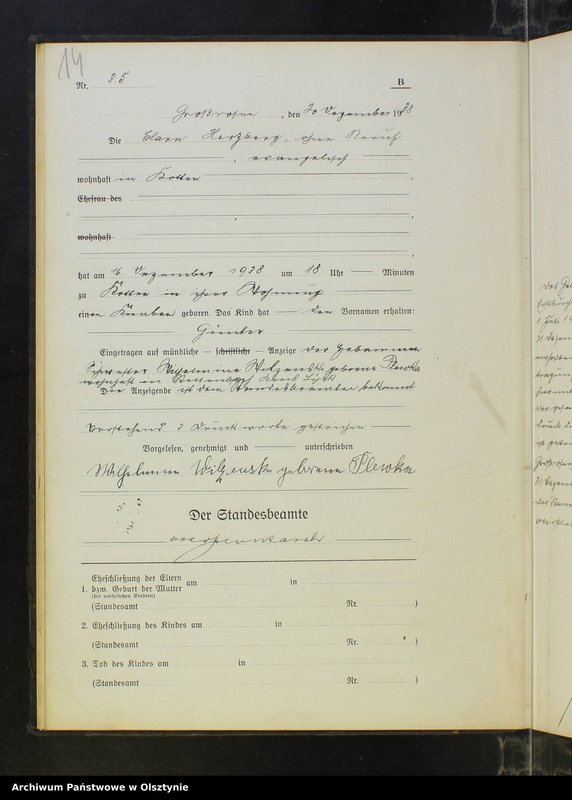 14
Nr. 35
B
Großrosen, den 20 Dezember 1938
Die Clara Herzberg, ohne Beruf
, evangelisch
wohnhaft in Kotten
Ehefrau des
,
wohnhaft
,
hat am 16. Dezember 1938 um 18 Uhr Minuten
zu Kotten in ihrer Wohnung
einen Knaben geboren. Das Kind hat den Vornamen erhalten:
Günter
Eingetragen auf mündliche – schriftliche – Anzeige der Hebamme
Schwester Wilhelmine geborene Plewka
wohnhaft in Kreis Lyck
Die Anzeigende ist dem Standesbeamten bekannt
Vorstehend 3 Druckworte gestrichen
Vorgelesen, genehmigt und unterschrieben
Wilhelmine geborene Plewka
Der Standesbeamte
1. Eheschließung der Eltern
bzw. Geburt der Mutter
(bei unehelichen Kindern)
am in
(Standesamt Nr. )
2. Eheschließung des Kindes am in
(Standesamt Nr. )
3. Tod des Kindes am in
(Standesamt Nr. )
Archiwum Państwowe w Olsztynie